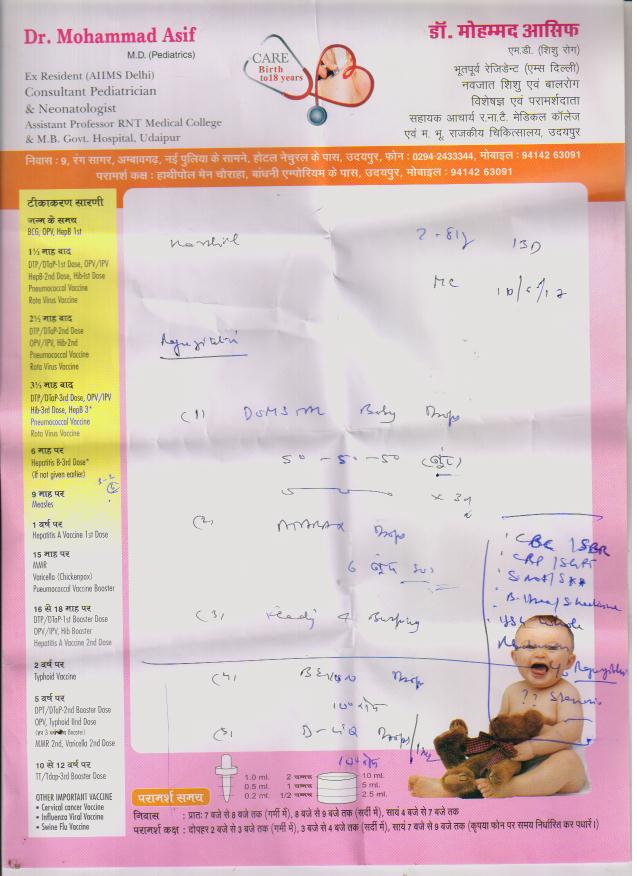 Dr. Mohammad Asif
M.D. (Pediatrics)
Ex Resident (AIIMS Delhi)
Consultant Pediatrician
& Neonatologist
Assistant Professor RNT Medical College
& M.B. Govt. Hospital, Udaipur
CARE
Birth
to18 years
डॉ. मोहम्मद आसिफ
एम.डी. (शिशु रोग)
भूतपूर्व रेजिडेन्ट (एम्स दिल्ली)
नवजात शिशु एवं बालरोग
विशेषज्ञ एवं परामर्शदाता
सहायक आचार्य र.ना.टै. मेडिकल कॉलेज
एवं म. भू. राजकीय चिकित्सालय, उदयपुर
निवास : 9, रंग सागर, अम्बावगढ़, नई पुलिया के सामने, होटल नेचुरल के पास, उदयपुर, फोन : 0294-2433344, मोबाइल : 94142 63091
परामर्श कक्ष : हाथीपोल मेन चौराहा, बांधनी एम्पोरियम के पास, उदयपुर, मोबाइल : 94142 63091
टीकाकरण सारणी
जन्म के समय
BCG, OPV, HepB 1st
1½ माह बाद
DTP/DTaP-1st Dose, OPV/IPV
HepB-2nd Dose, Hib-Ist Dose
Pneumococcal Vaccine
Rota Virus Vaccine
2½ माह बाद
DTP/DTaP-2nd Dose
OPV/IPV, Hib-2nd
Pneumococcal Vaccine
Rota Virus Vaccine
3½ माह बाद
DTP/DTaP-3rd Dose, OPV/IPV
Hib-3rd Dose, HepB 3*
Pneumococcal Vaccine
Rota Virus Vaccine
6 माह पर
Hepatitis B-3rd Dose*
(If not given earlier)
9 माह पर
Measles
1 वर्ष पर
Hepatitis A Vaccine 1st Dose
15 माह पर
MMR
Varicella (Chickenpox)
Pueumococcal Vaccine Booster
16 से 18 माह पर
DTP/DTaP-1st Booster Dose
OPV/IPV, Hib Booster
Hepatitis A Vaccine 2nd Dose
2 वर्ष पर
Typhoid Vaccine
5 वर्ष पर
DPT/DTaP-2nd Booster Dose
OPV, Typhoid IInd Dose
MMR 2nd, Varicella 2nd Dose
10 से 12 वर्ष पर
TT/Tdap-3rd Booster Dose
OTHER IMPORTANT VACCINE
• Cervical cancer Vaccine
• Influenza Viral Vaccine
• Swine Flu Vaccine
13D
MC
(1) DOMSTAL Baby Drops
(2) Drops
6 बूंद SOS
(3) 4 Burping
(4) Drop
(5) Drops
CBC / SBR
CRP / SGPT
?? Stenosis
1.0 ml.
0.5 ml.
0.2 ml.
2 चम्मच
1 चम्मच
1/2 चम्मच
10 ml.
5 ml.
2.5 ml.
परामर्श समय
निवास : प्रातः 7 बजे से 8 बजे तक (गर्मी में), 8 बजे से 9 बजे तक (सर्दी में), सायं 4 बजे से 7 बजे तक
परामर्श कक्ष : दोपहर 2 बजे से 3 बजे तक (गर्मी में), 3 बजे से 4 बजे तक (सर्दी में), सायं 7 बजे से 9 बजे तक (कृपया फोन पर समय निर्धारित कर पधारें।)